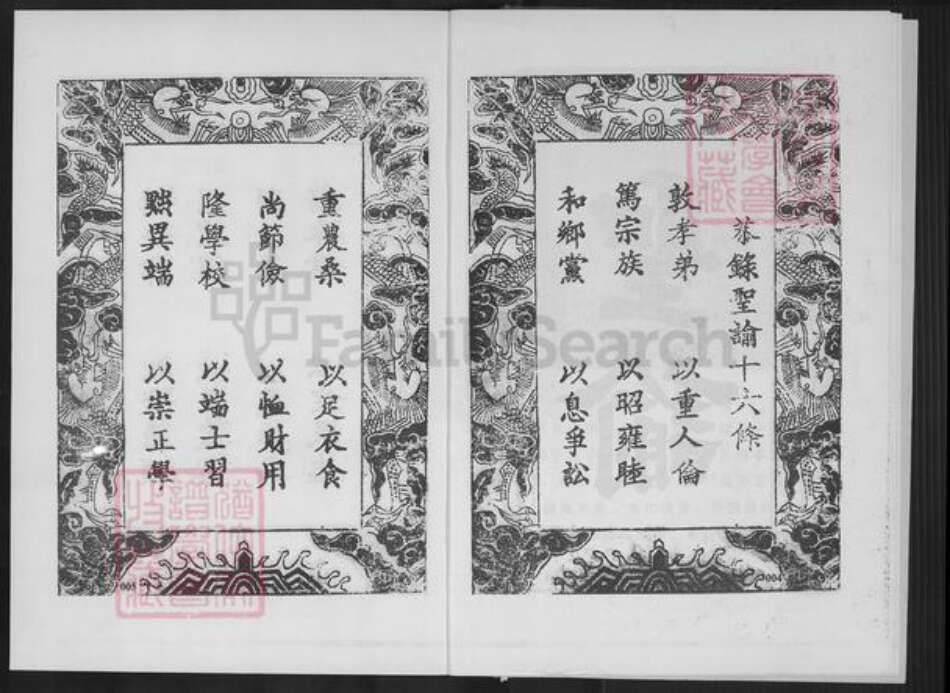 恭錄聖諭十六條
敦孝弟 以重人倫
篤宗族 以昭雍睦
和鄉黨 以息爭訟
重農桑 以足衣食
尚節儉 以恤財用
隆學校 以端士習
黜異端 以崇正學
004
005
FamilySearch
學會
藏